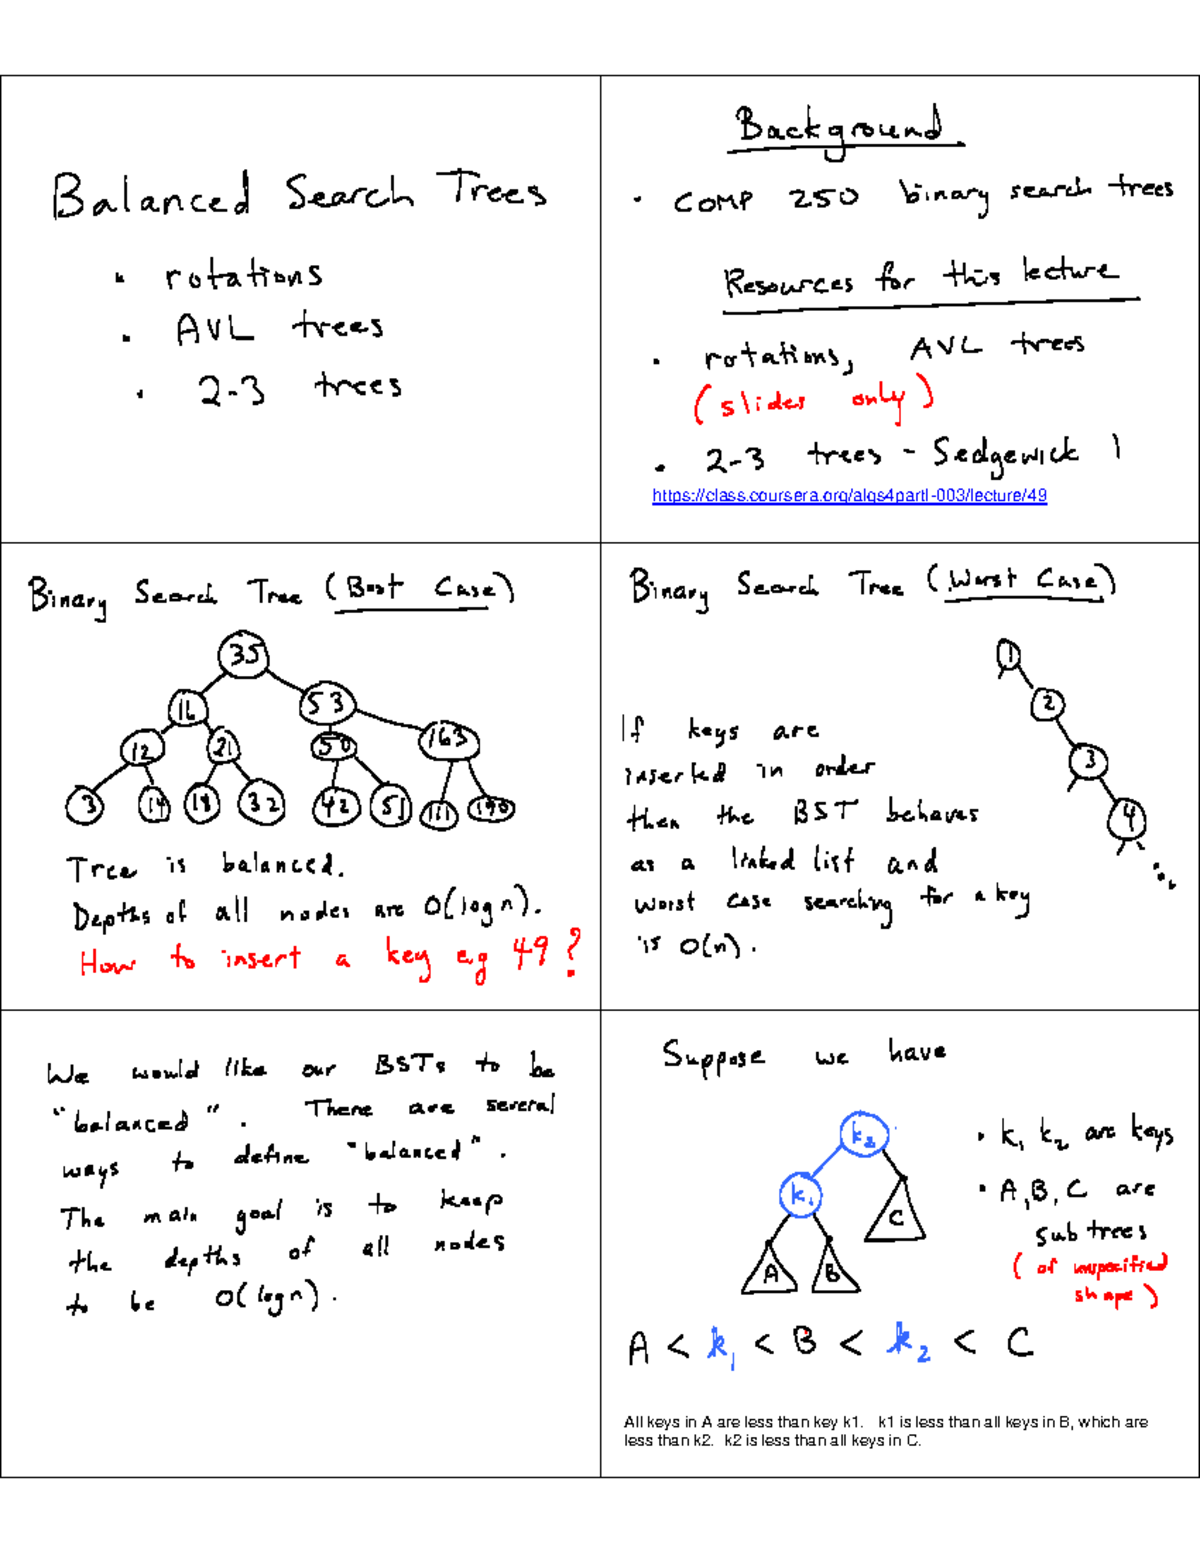 Balanced Search Trees
• rotations
• AVL trees
• 2-3 trees
Background
• COMP 250 binary search trees
Resources for this lecture
• rotations, AVL trees
(slides only)
• 2-3 trees - Sedgewick 1
https://class.coursera.org/algs4partI-003/lecture/49
Binary Search Tree (Best Case)
35
16 53
12 21 50 163
3 14 18 32 42 51 111 190
Tree is balanced.
Depths of all nodes are O(log n).
How to insert a key eg 49?
Binary Search Tree (Worst Case)
1
2
3
4
If keys are
inserted in order
then the BST behaves
as a linked list and
worst case searching for a key
is O(n).
We would like our BSTs to be
"balanced". There are several
ways to define "balanced".
The main goal is to keep
the depths of all nodes
to be O(log n).
Suppose we have
k2
k1
C
A B
• k1 k2 are keys
• A, B, C are
subtrees
(of unspecified
shape)
A < k1 < B < k2 < C
All keys in A are less than key k1. k1 is less than all keys in B, which are
less than k2. k2 is less than all keys in C.